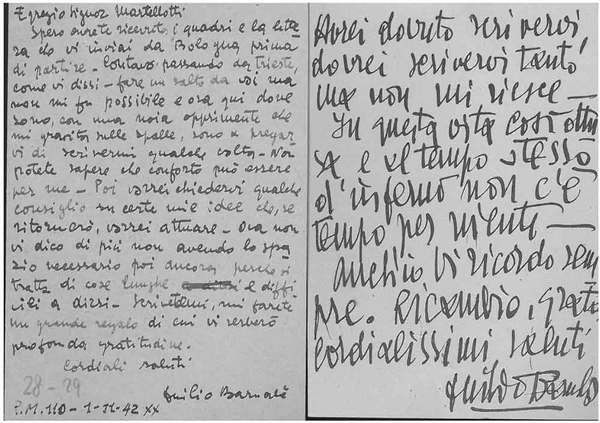 Egregio Signor Martellotti
Spero avrete ricevuto, i quadri e la lette
ra che vi inviai da Bologna prima
di partire. Contavo passando da Trieste,
come vi dissi - fare un salto da voi ma
non mi fu possibile e ora qui dove
sono, con una noia opprimente che
mi gravita sulle spalle, sono a pregar
vi di scrivermi qualche volta - Non
potete sapere che conforto può essere
per me - Poi vorrei chiedervi qualche
consiglio su certe mie idee che, se
ritornerò, vorrei attuare - Ora non
vi dico di più non avendo lo spa
zio necessario poi ancora perchè si
tratta di cose lunghe e diffi
cili a dirsi - Scrivetemi, mi farete
un grande regalo di cui vi serberò
profonda gratitudine.
Cordiali saluti
28-29
Duilio Barnabè
P.M. 110 - 1-11-42 XX
Avrei dovuto scrivervi,
dovrei scrivervi tanto,
ma non mi riesce -
In questa vita così
e al tempo stesso
d'inferno non c'è
tempo per niente -
Vi ricordo sem
pre. Ricambio, grato
cordialissimi saluti
Duilio Barnabè